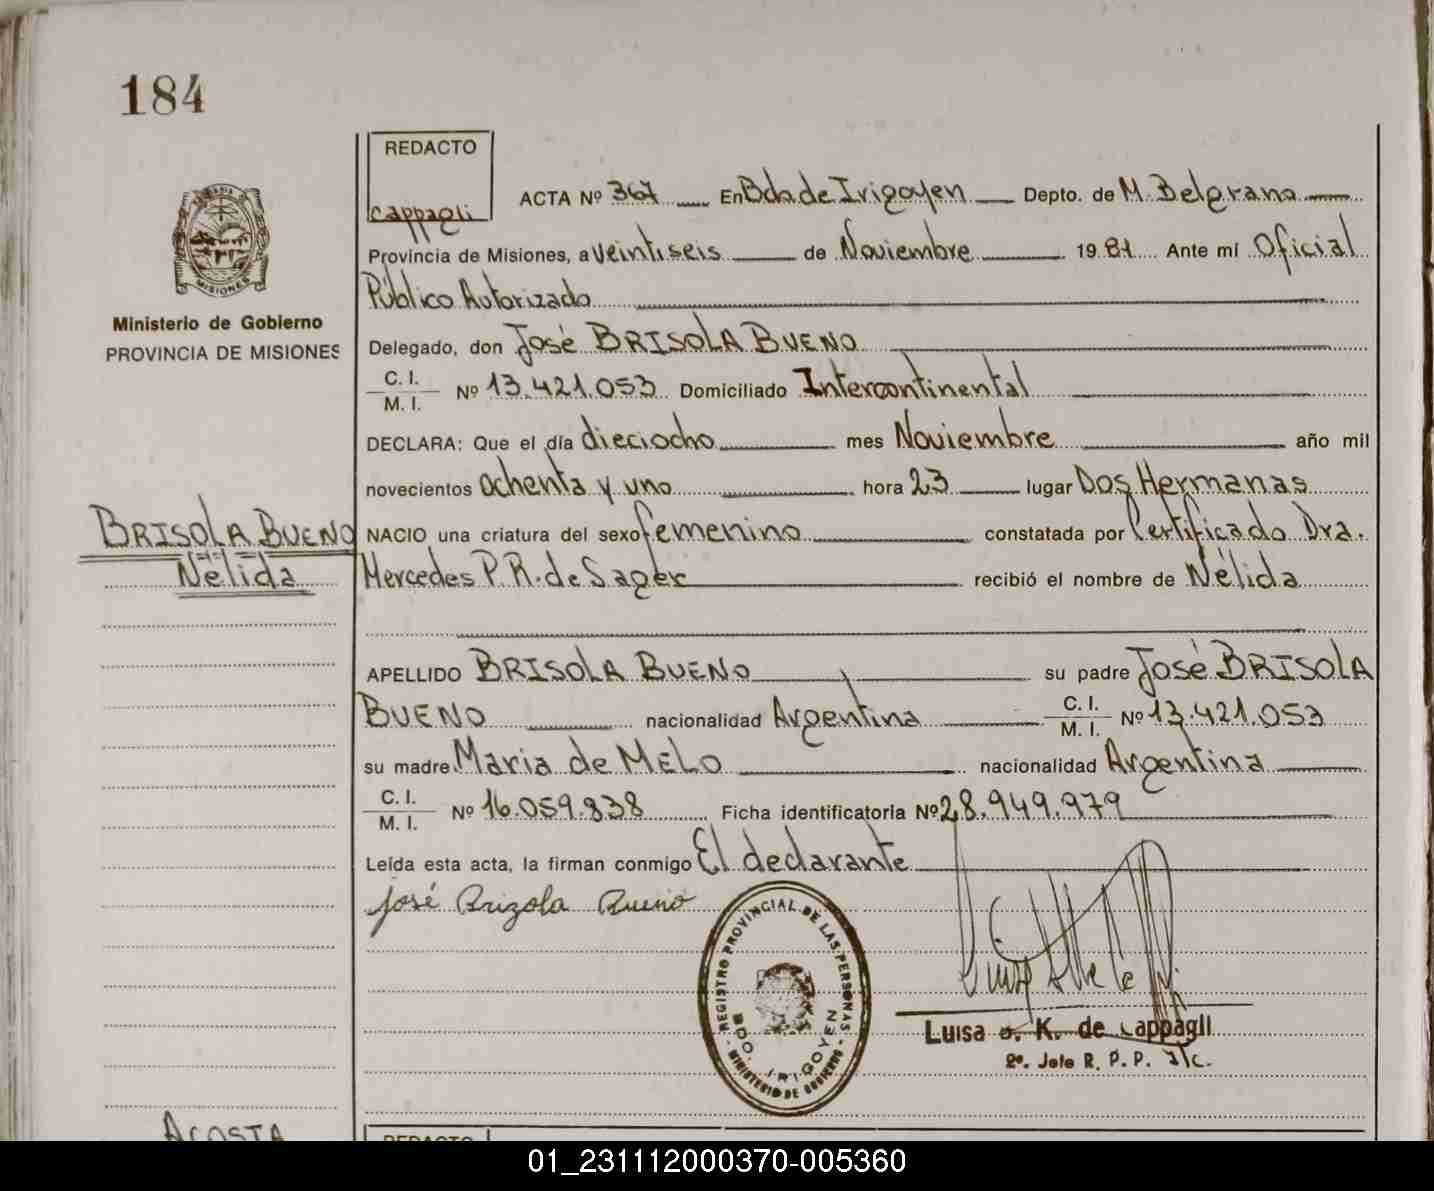 184
REDACTO
cappagli
ACTA Nº 367 En Bdo de Irigoyen Depto. de M. Belgrano
MISIONES
Provincia de Misiones, a veintiseis de Noviembre 1981 Ante mí Oficial
Público Autorizado
Ministerio de Gobierno
PROVINCIA DE MISIONES
Delegado, don José BRISOLA BUENO
C. I.
M. I.
Nº 13.421.053 Domiciliado Intercontinental
DECLARA: Que el día dieciocho mes Noviembre año mil
novecientos ochenta y uno hora 23 lugar Dos Hermanas
BRISOLA BUENO
Nélida
NACIO una criatura del sexo femenino constatada por Certificado Dra.
Mercedes P.R. de Sager recibió el nombre de Nélida
APELLIDO BRISOLA BUENO su padre José BRISOLA
BUENO nacionalidad Argentina C. I. M. I. Nº 13.421.053
su madre Maria de MELO nacionalidad Argentina
C. I.
M. I.
Nº 16.059.838 Ficha identificatoria Nº 28.949.979
Leída esta acta, la firman conmigo El declarante
José Brizola Bueno
REGISTRO PROVINCIAL DE LAS PERSONAS
BDO. IRIGOYEN
MINISTERIO DE GOBIERNO
Luisa K. de Cappagli
2º. Jefe R. P. P. I/c.
ACOSTA
REDACTO
01_231112000370-005360